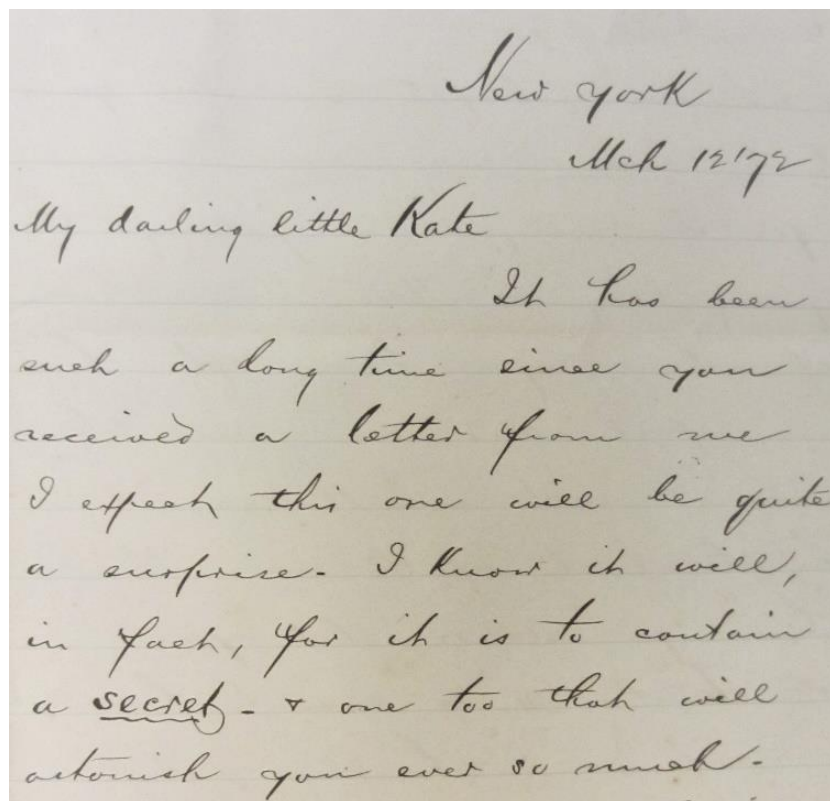 New York
Mch 12 '72
My darling little Kate
It has been
such a long time since you
received a letter from me
I expect this one will be quite
a surprise - I know it will,
in fact, for it is to contain
a secret - & one too that will
astonish you ever so much -